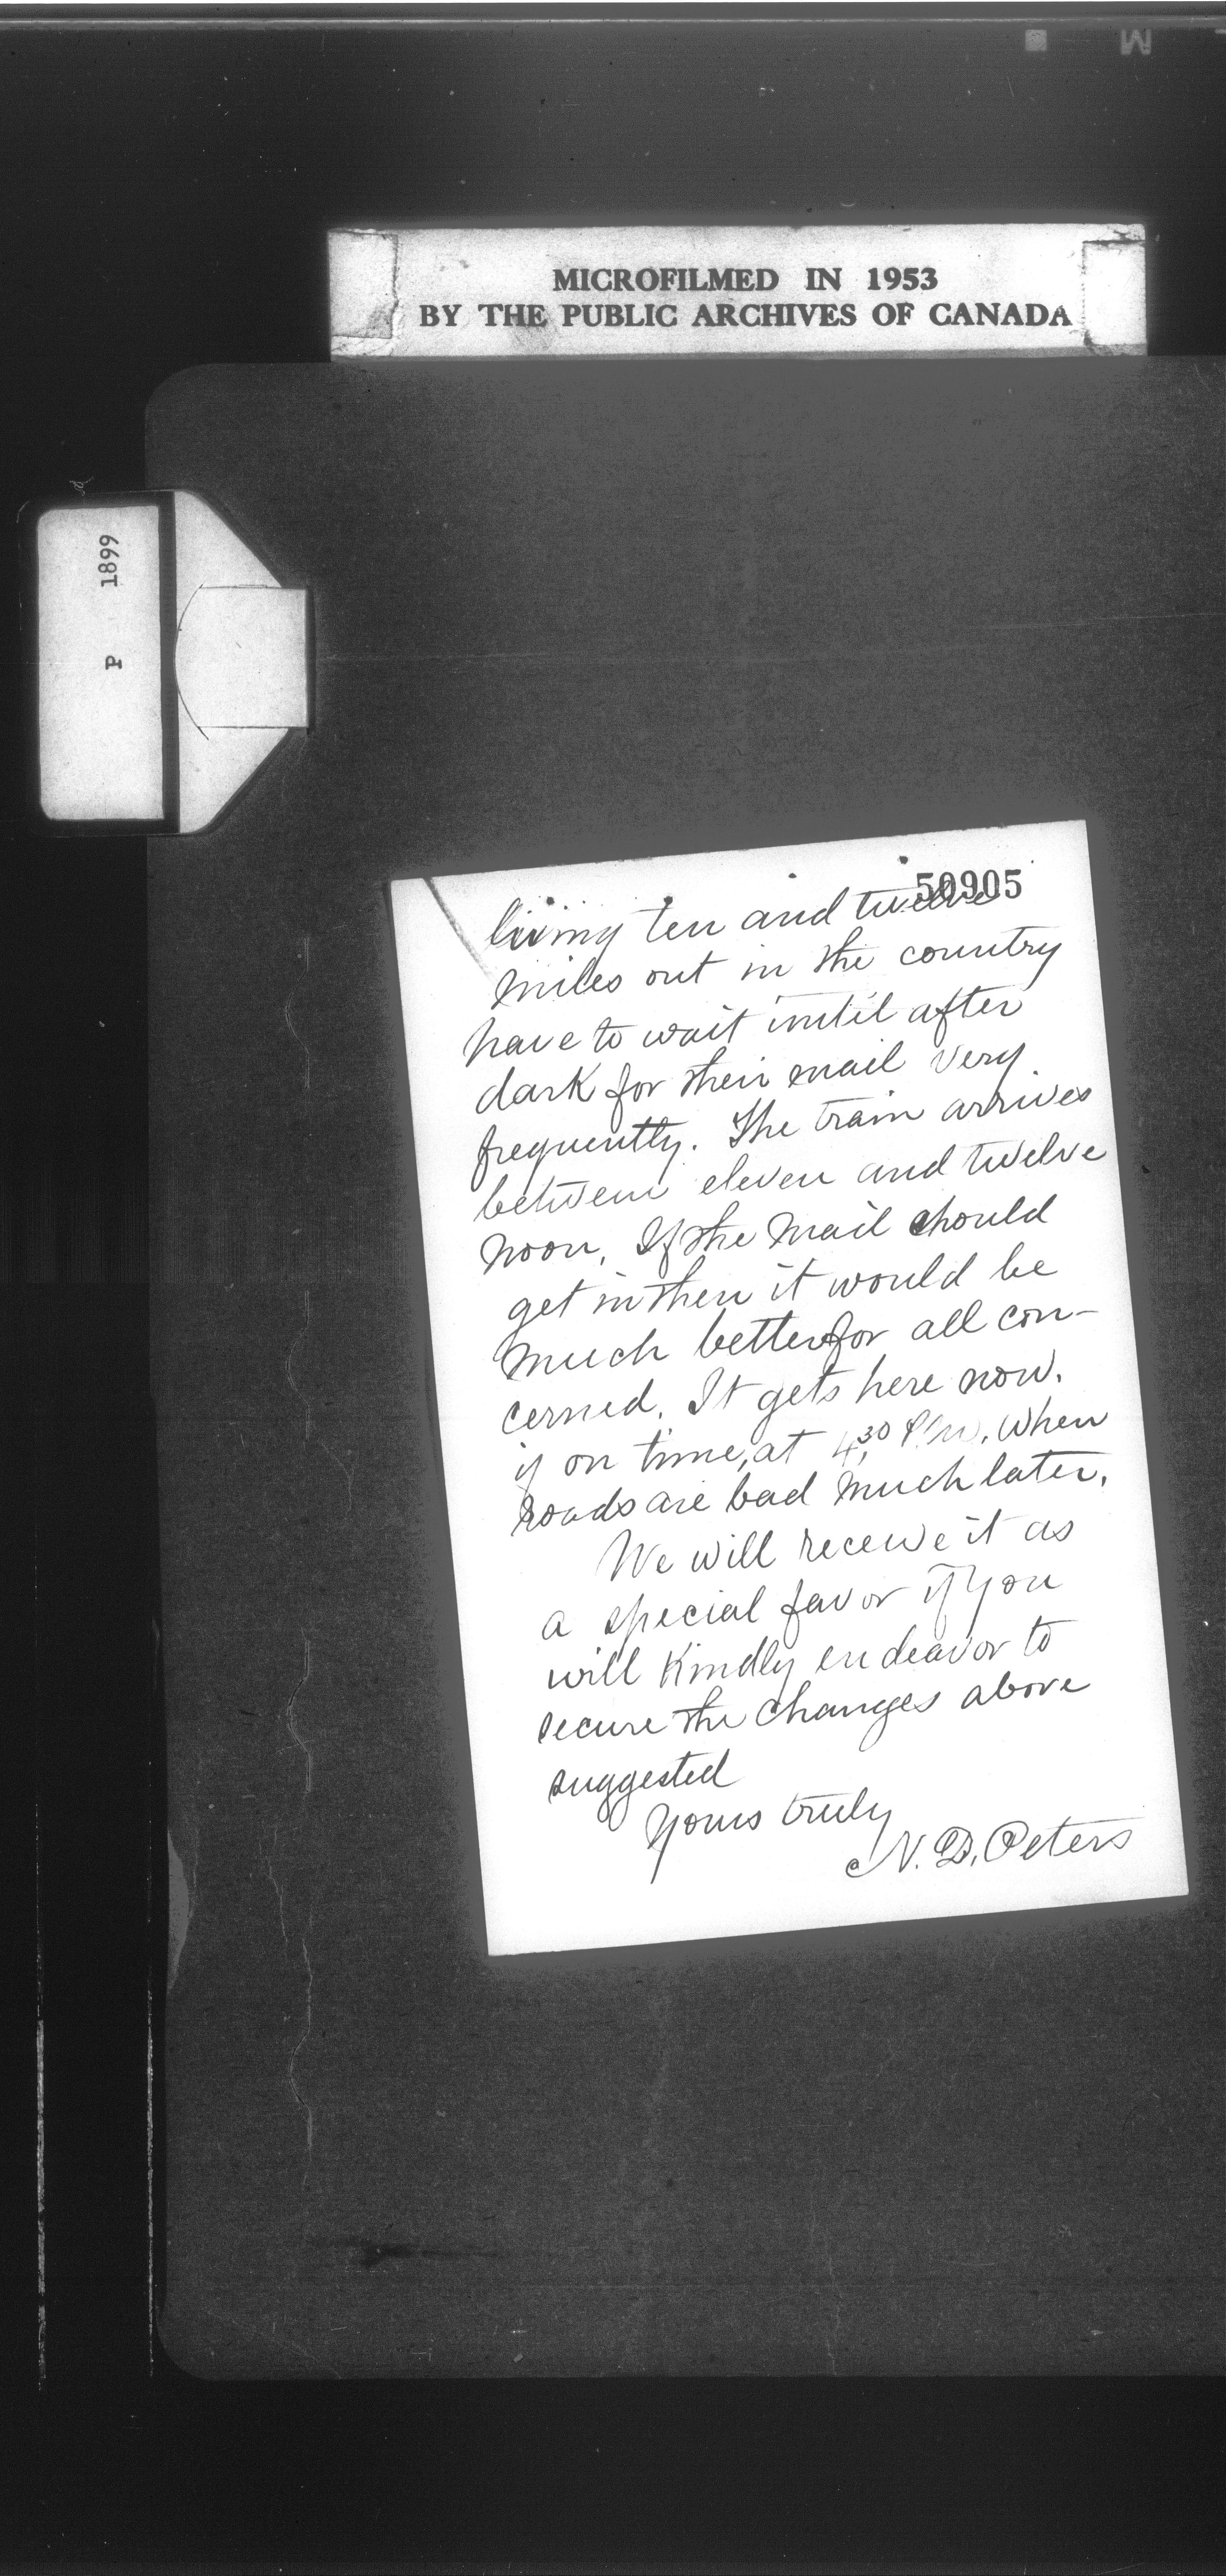 MICROFILMED IN 1953
BY THE PUBLIC ARCHIVES OF CANADA
P 1899
50905
living ten and twelve
miles out in the country
have to wait until after
dark for their mail very
frequently. The train arrives
between eleven and twelve
noon. If the mail should
get in then it would be
much better for all con-
cerned. It gets here now.
if on time, at 4,30 P.M. When
roads are bad much later.
We will receive it as
a special favor if you
will kindly endeavor to
secure the changes above
suggested
Yours truly
N. D. Peters